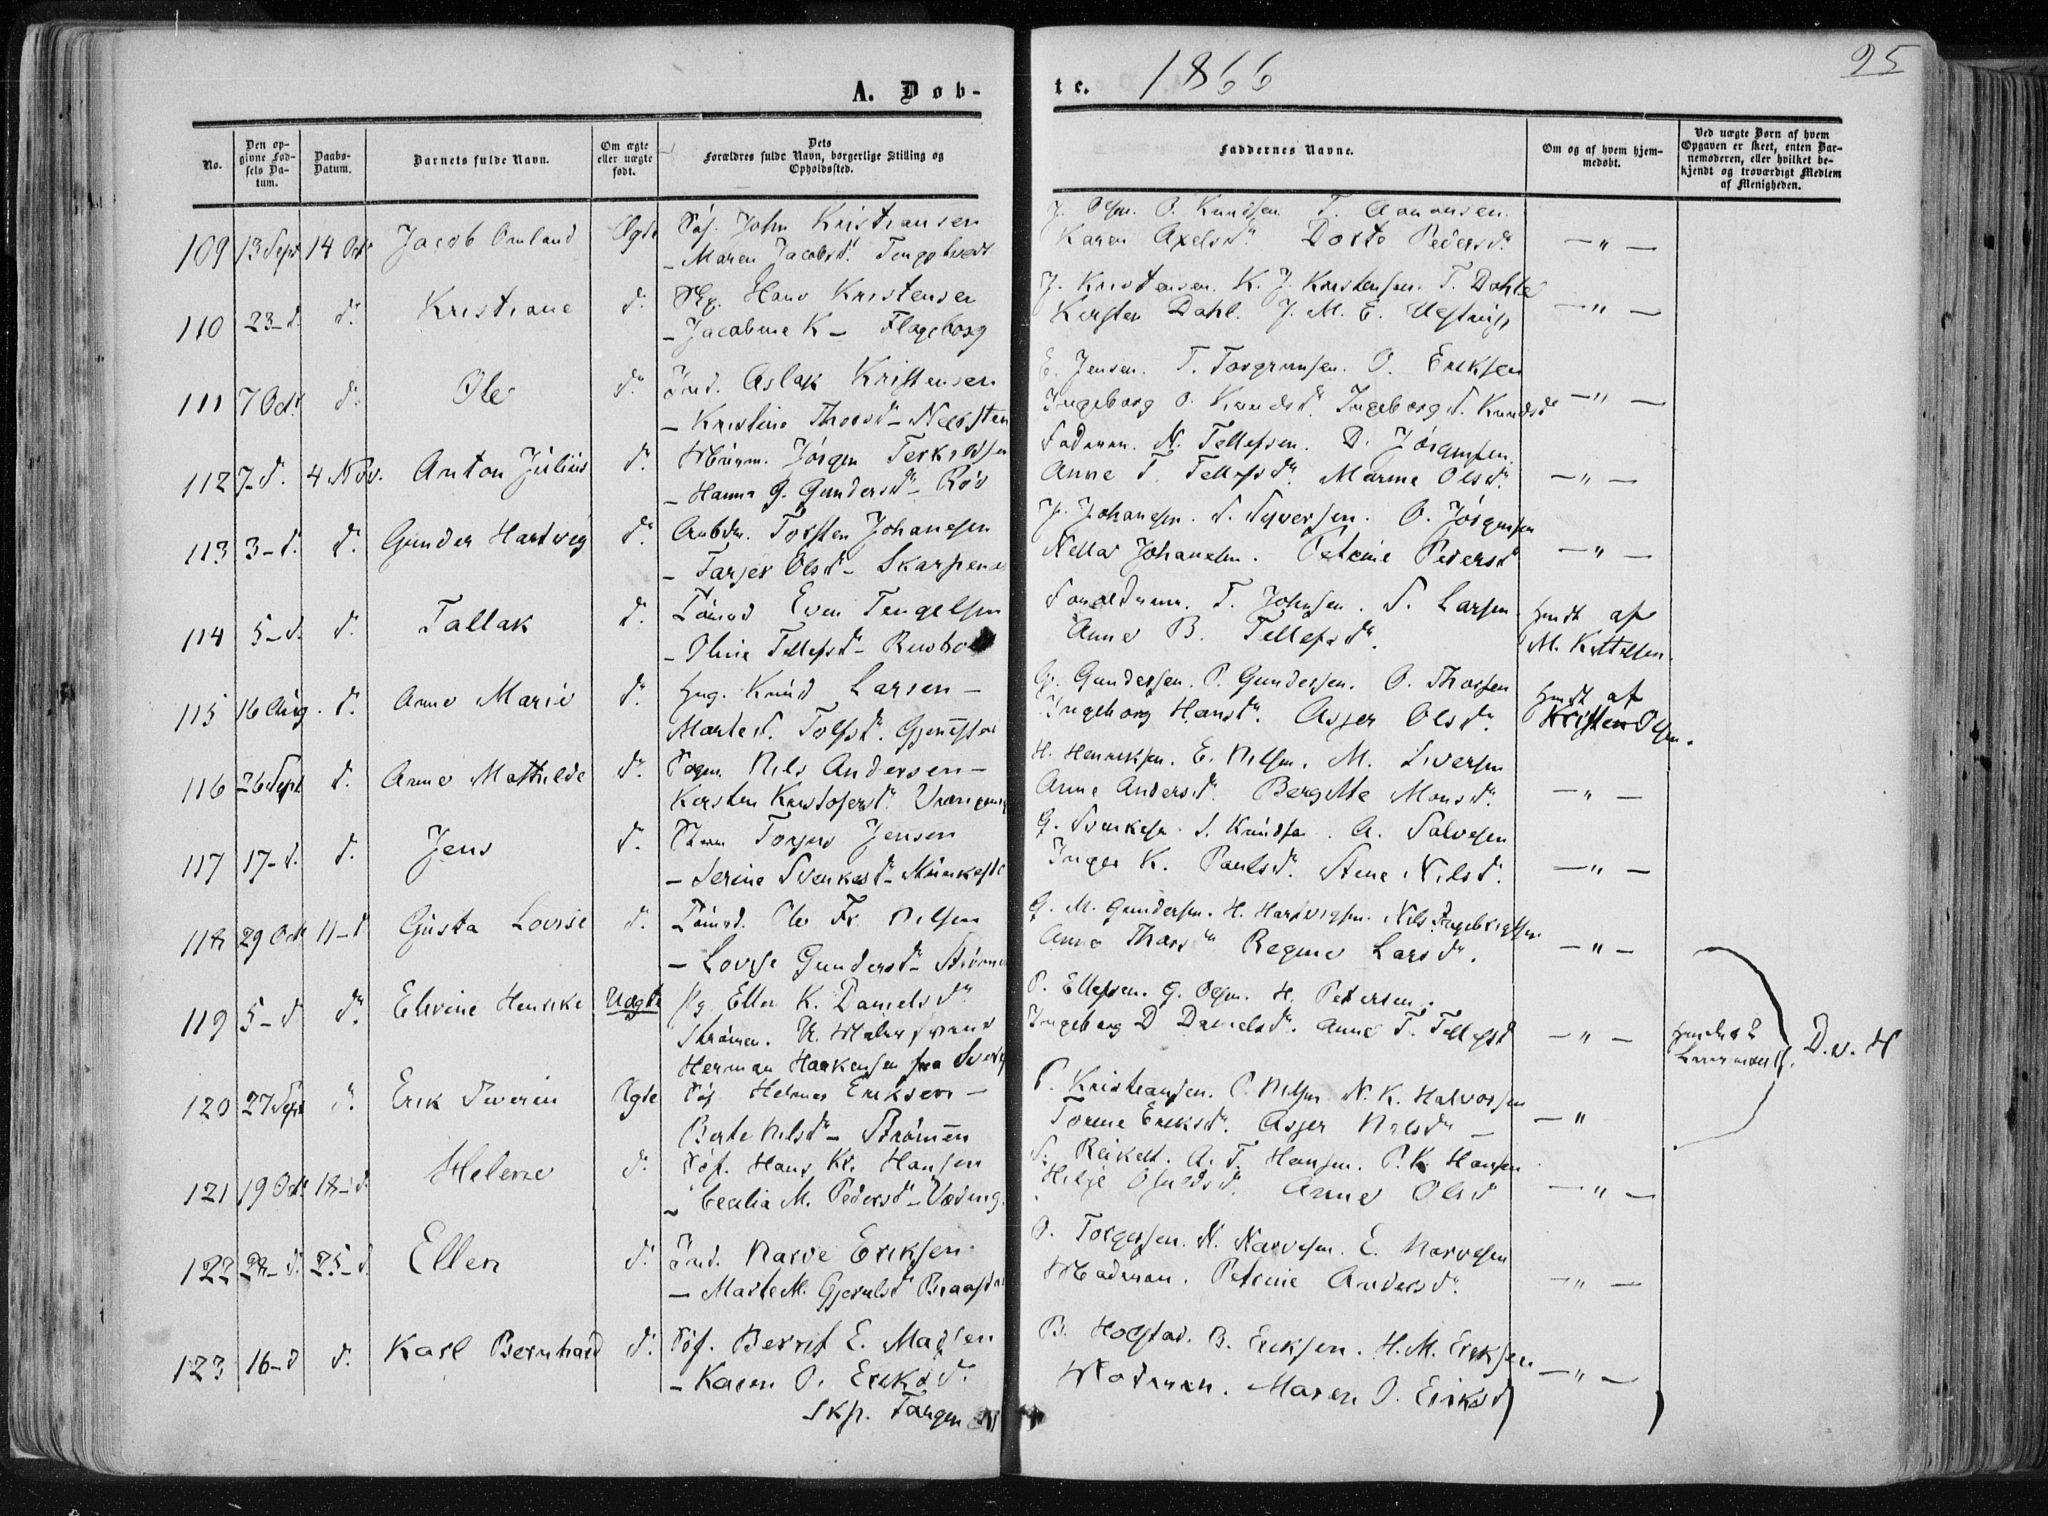 1866
95
A. Døb-
te.
No.
Den op-
givne Fød-
sels Da-
tum.
Daabs-
Datum.
Barnets fulde Navn.
Om ægte
eller uægte
født.
Dets
Forældres fulde Navn, borgerlige Stilling og
Opholdssted.
Faddernes Navne.
Om og af hvem hjem-
medøbt.
Ved uægte Børn af hvem
Opgaven er skeet, enten Bar-
nemoderen, eller hvilket be-
kjendt og troværdigt Medlem
af Menigheden.
109 13 Sept 14 Oct Jacob Omland Ægte Søf. John Kristiansen
- Maren Jacobsd.
J. Olsen. O. Knudsen. T. Aanonsen.
Karen Axelsd. Dorte Pedersd. — " —
110 23-d. d. Kristiane d. Hans Kristensen
- Jacobine K - Flageborg
J. Kristensen. K. J. Kristensen. T. Dahle
Kirsten Dahl. J. M. E. — " —
111 7 Oct d. Ole d. Ind. Aslak Kristensen
- Kristine Thorsd - Neersten
E. Jensen. T. Torgrimsen. O. Eriksen
Ingeborg O. Knudsd. Ingeborg S. Knudsd — " —
112 7-d. 4 Nov. Anton Julius d. Jørgen Terkildsen
- Hanna G. Gundersd - Röd
Faderen. N. Tellefsen. D. Jørgensen.
Anne T. Tellefsd. Marine Olsd. — " —
113 3-d. d. Gunder Hartvig d. Arbdr. Torsten Johansen
- Tarjer Olsd - Skarpenes
J. Johansen. S. Syversen. O. Jørgensen
Nella Johansen. Petrine Pedersd — " —
114 5-d. d. Tallak d. Tømmd Even Tengelsen
- Oline Tellefsd -
T. Johnsen. S. Larsen
Anne B. Tellefsd.
Hmdt af
M. Kittelsen.
115 16 Aug. d. Anne Marie d. Hug. Knud Larsen -
Marte
G. Gundersen. P. Gundersen. O. Thorsen
Ingeborg Hansd. Asjer Olsd.
Hmdt af
Kristen Olsen.
116 26 Sept d. Anne Mathilde d. Nils Andersen -
Kirsten Kristofersd.
H. Henriksen. E. Nilsen. M. Iversen
Anne Andersd. Bergitte Monsd. — " —
117 17-d. d. Jens d. Torjus Jensen
- Serine Svenkesd -
G. Svenkesen. S. Knudsen. A. Salvesen
Inger K. Paulsd. Stine Nilsd. — " —
118 29 Oct 11-d Gusta Lovise d. Tømmd. Ole Fr. Nilsen
- Lovise Gundersd -
G. M. Gundersen. H. Hartvigsen. Nils Ingebrigtsen
Anne Thorsd Regine Larsd. — " —
119 5-d d. Elevine Henrikke Uægte Pg Ellen K. Danielsd
Strømen. U. Maler Svend
Herman Haakensen fra Sverig
P. Ellefsen. G. Olsen. H. Petersen.
Ingeborg D Danielsd. Anne T. Tellefsd — " —
D. v. H
120 27 Sept d. Erik Severin Ægte Søf Helmer Eriksen -
Berte Nilsd - Strømen
P. Kristiansen. O. Nilsen. N. K. Halvorsen
Torine Eriksd. Asjer Nilsd - — "
121 19 Oct 18-d. Helene d. Søf. Hans Kr. Hansen
- Cecilia M. Pedersd -
S. Reikelt. A. T. Hansen. P. K. Hansen
Helje Osuldsd. Anne Olsd — " —
122 28-d. 25-d. Ellen d. Ind. Narve Eriksen
- Marte M. Gjerulsd
O. Torgersen. N. Narvesen. E. Narvesen
Moderen. Petrine Andersd. — " —
123 16-d d. Karl Bernhard d. Søf. Berret E. Madsen
- Karen O. Eriksd.
Skp. Jørgen
B. Holstad. B. Eriksen. H. M. Eriksen
Moderen. Maren O. Eriksd — " —